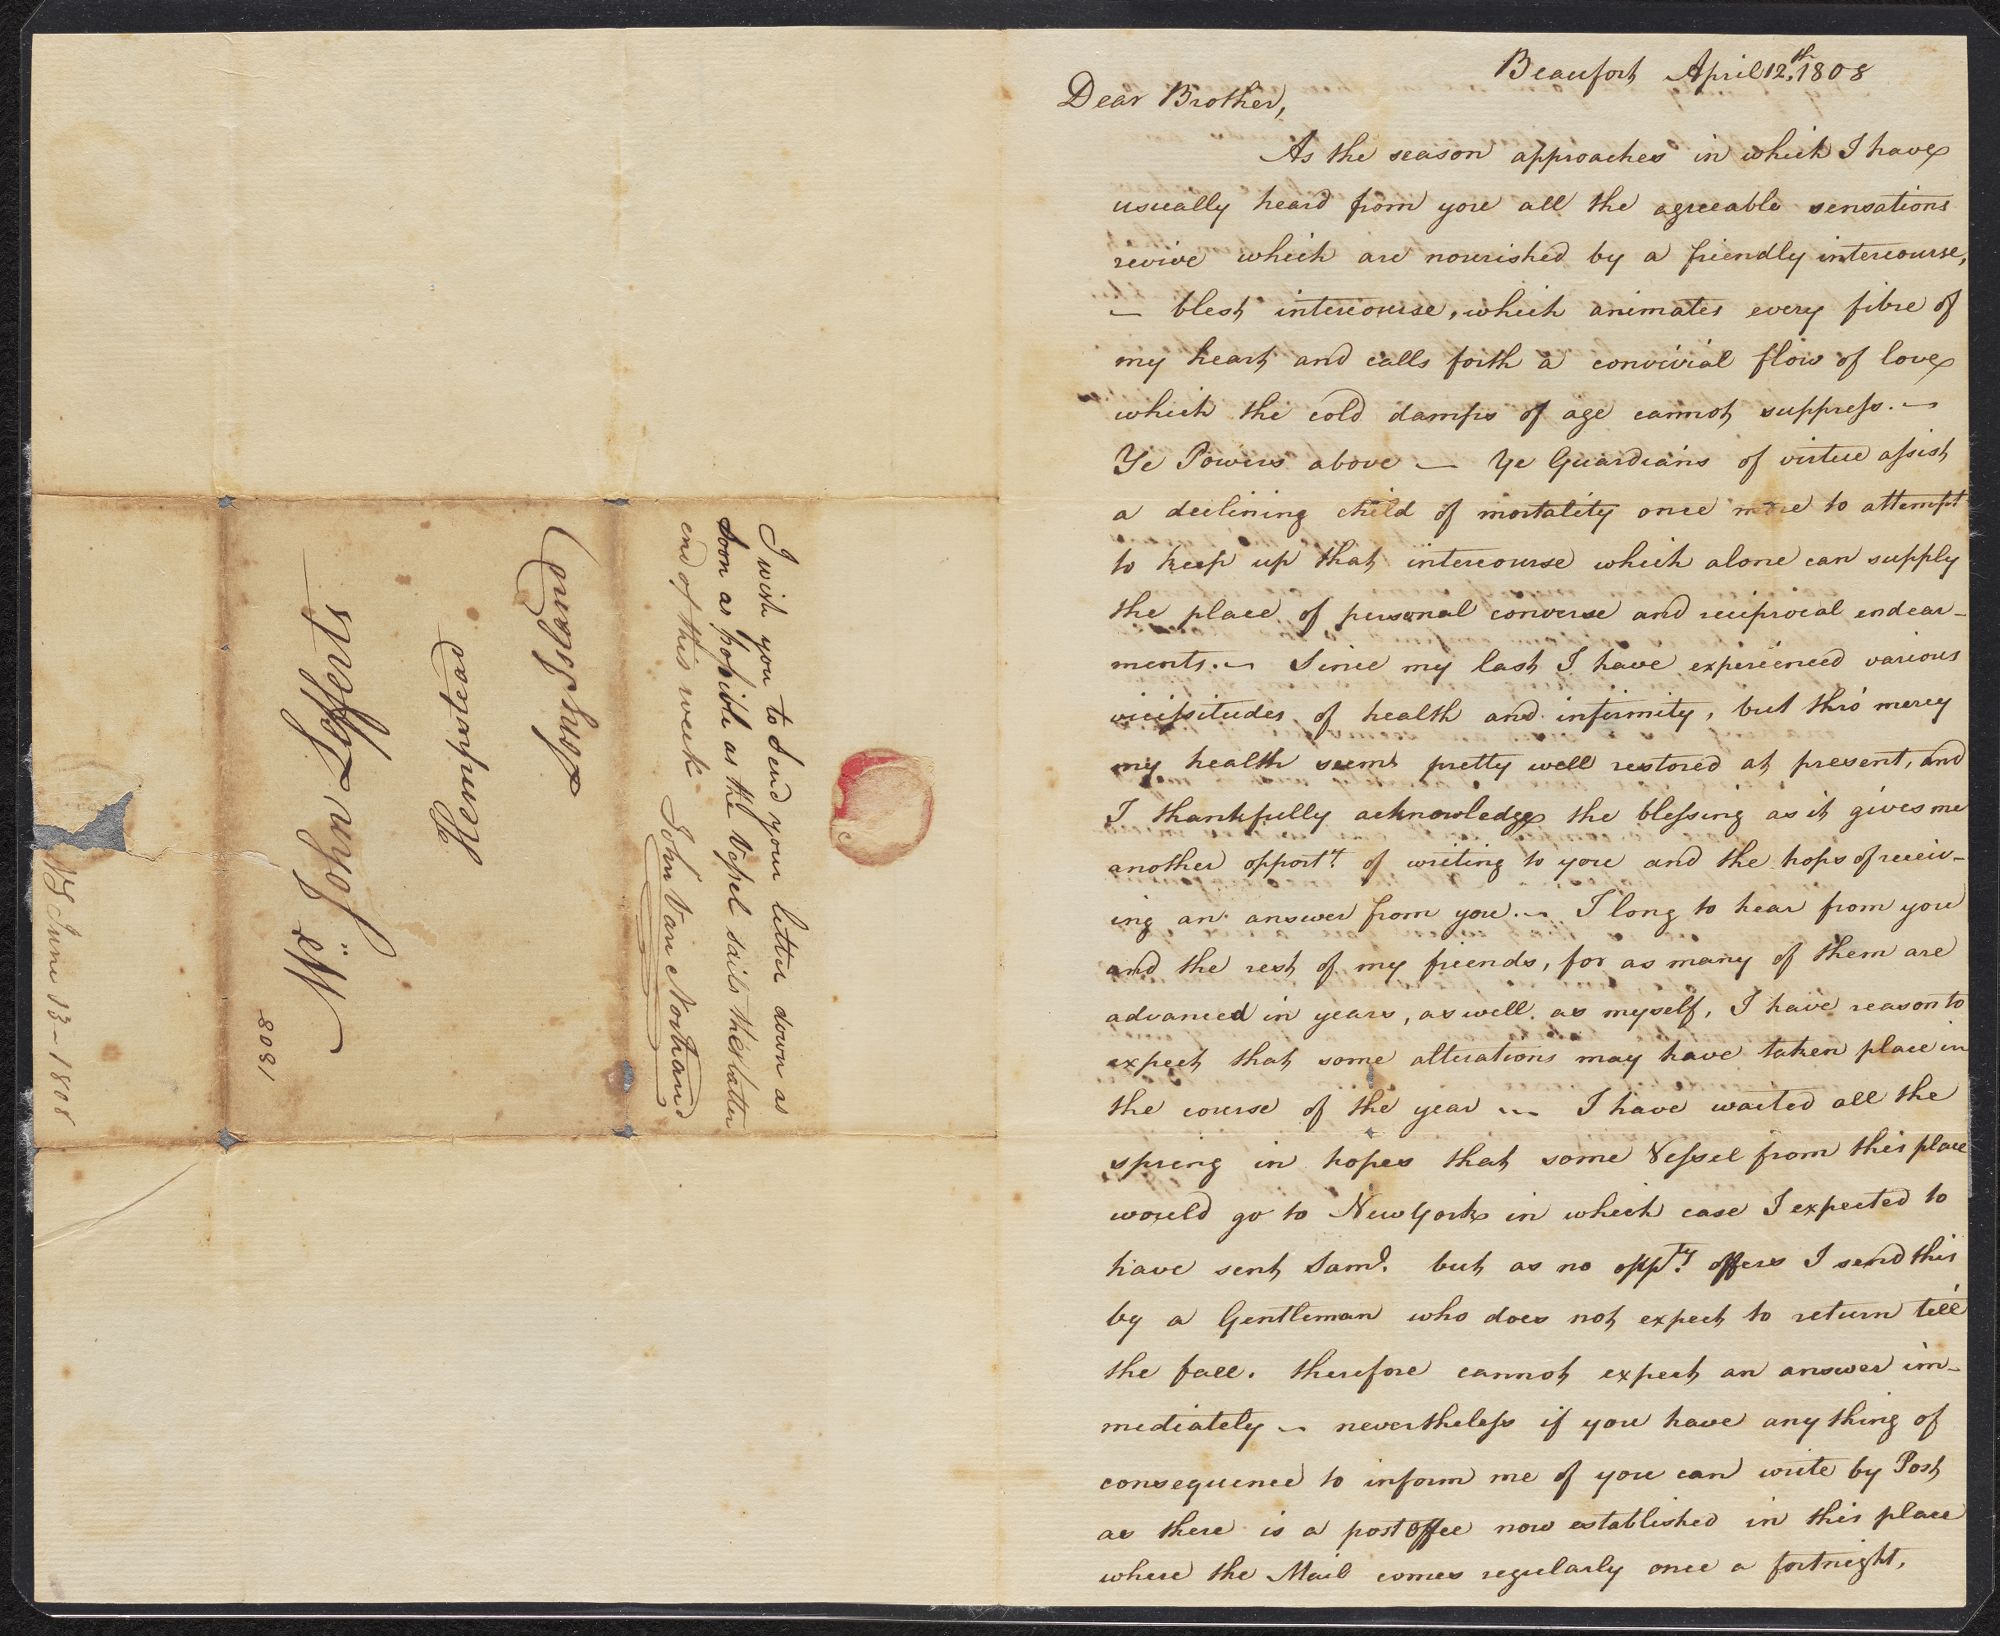 Beaufort April 12th. 1808
Dear Brother,
As the season approaches in which I have
usually heard from you all the agreeable sensations
revive which are nourished by a friendly intercourse,
— blest intercourse, which animates every fibre of
my heart and calls forth a convivial flow of love
which the cold damps of age cannot suppress. —
Ye Powers above — Ye Guardians of virtue assist
a declining child of mortality once more to attempt
to keep up that intercourse which alone can supply
the place of personal converse and reciprocal endear-
ments. — Since my last I have experienced various
vicissitudes of health and infirmity, but thro' mercy
my health seems pretty well restored at present, and
I thankfully acknowledge the blessing as it gives me
another opportt. of writing to you and the hops of receiv-
ing an answer from you. — I long to hear from you
and the rest of my friends, for as many of them are
advanced in years, as well as myself, I have reason to
expect that some alterations may have taken place in
the course of the year — I have waited all the
spring in hopes that some Vessel from this place
would go to New York in which case I expected to
have sent Saml. but as no oppty. offers I send this
by a Gentleman who does not expect to return till
the fall. therefore cannot expect an answer im-
mediately — nevertheless if you have any thing of
consequence to inform me of you can write by Post
as there is a post offee now established in this place
where the Mail comes regularly once a fortnight.
I wish you to Send your letter down as
soon as possible as the Vessel sails the latter
end of this week John Van Nortrand
Long Island
Hempstead
Mr. John Lefferts
1808
NY June 13 - 1808